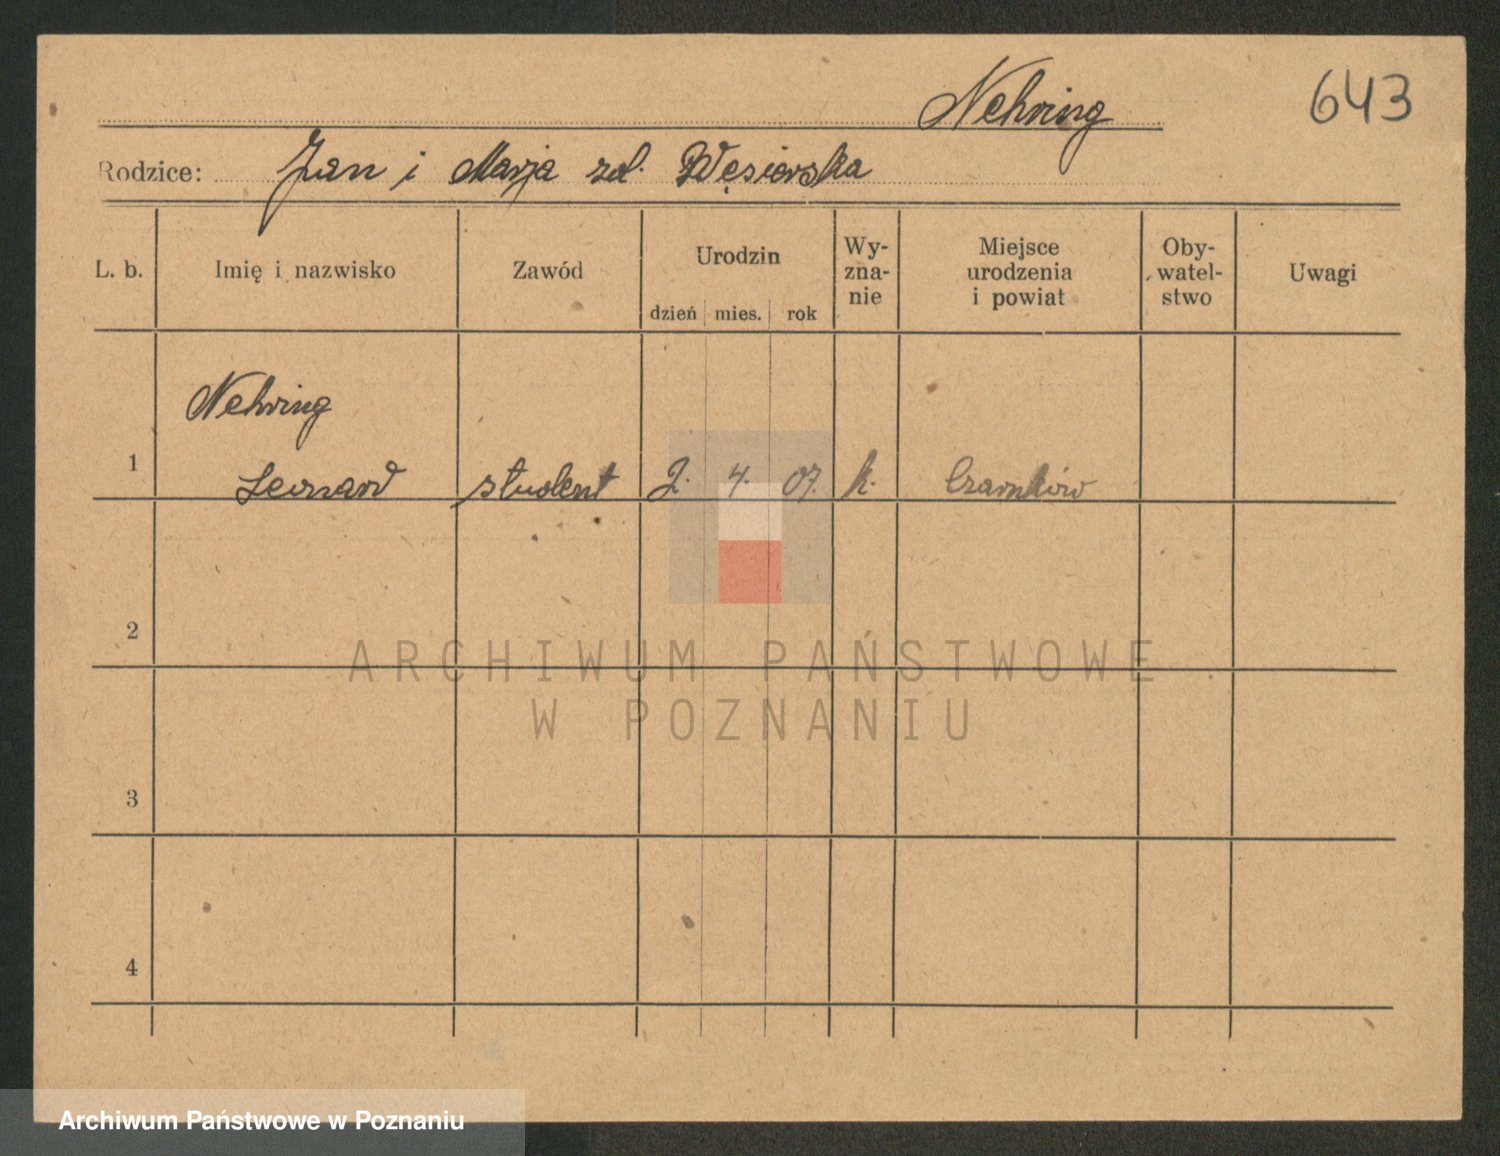 Nehring
643
Rodzice: Jan i Marja zd. Węsierska
L. b. Imię i nazwisko Zawód Urodzin dzień mies. rok Wy-zna-nie Miejsce urodzenia i powiat Oby-watel-stwo Uwagi
Nehring
1 Leonard student 2. 4. 07. k. Czarnków
2
ARCHIWUM PAŃSTWOWE
W POZNANIU
3
4
Archiwum Państwowe w Poznaniu